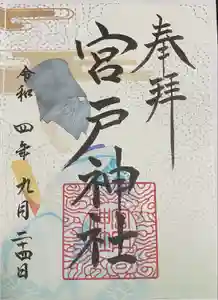 奉拝
宮戸神社
令和四年九月二十四日